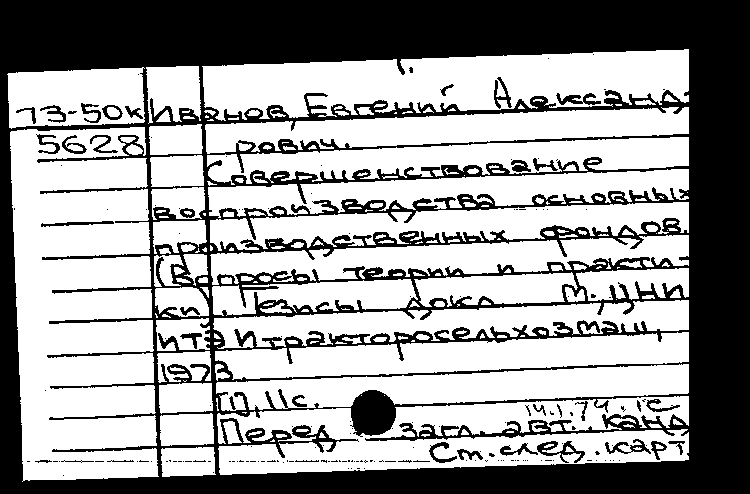 1.
73-50к Иванов, Евгений Александ-
5628 рович.
Совершенствование
воспроизводства основных
производственных фондов.
(Вопросы теории и практи-
ки). Тезисы докл. М., ЦНИ
ИТЭИтракторосельхозмаш,
1973.
IП, 11с.
14.1.74. 1с.
Перед загл. авт.: канд
См. след. карт